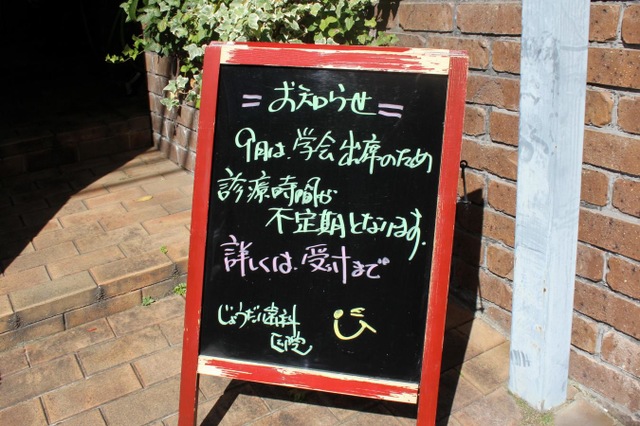 =お知らせ=
9月は、学会出席のため
診療時間が
不定期となります。
詳しくは、受付まで
じょうだい歯科
医院